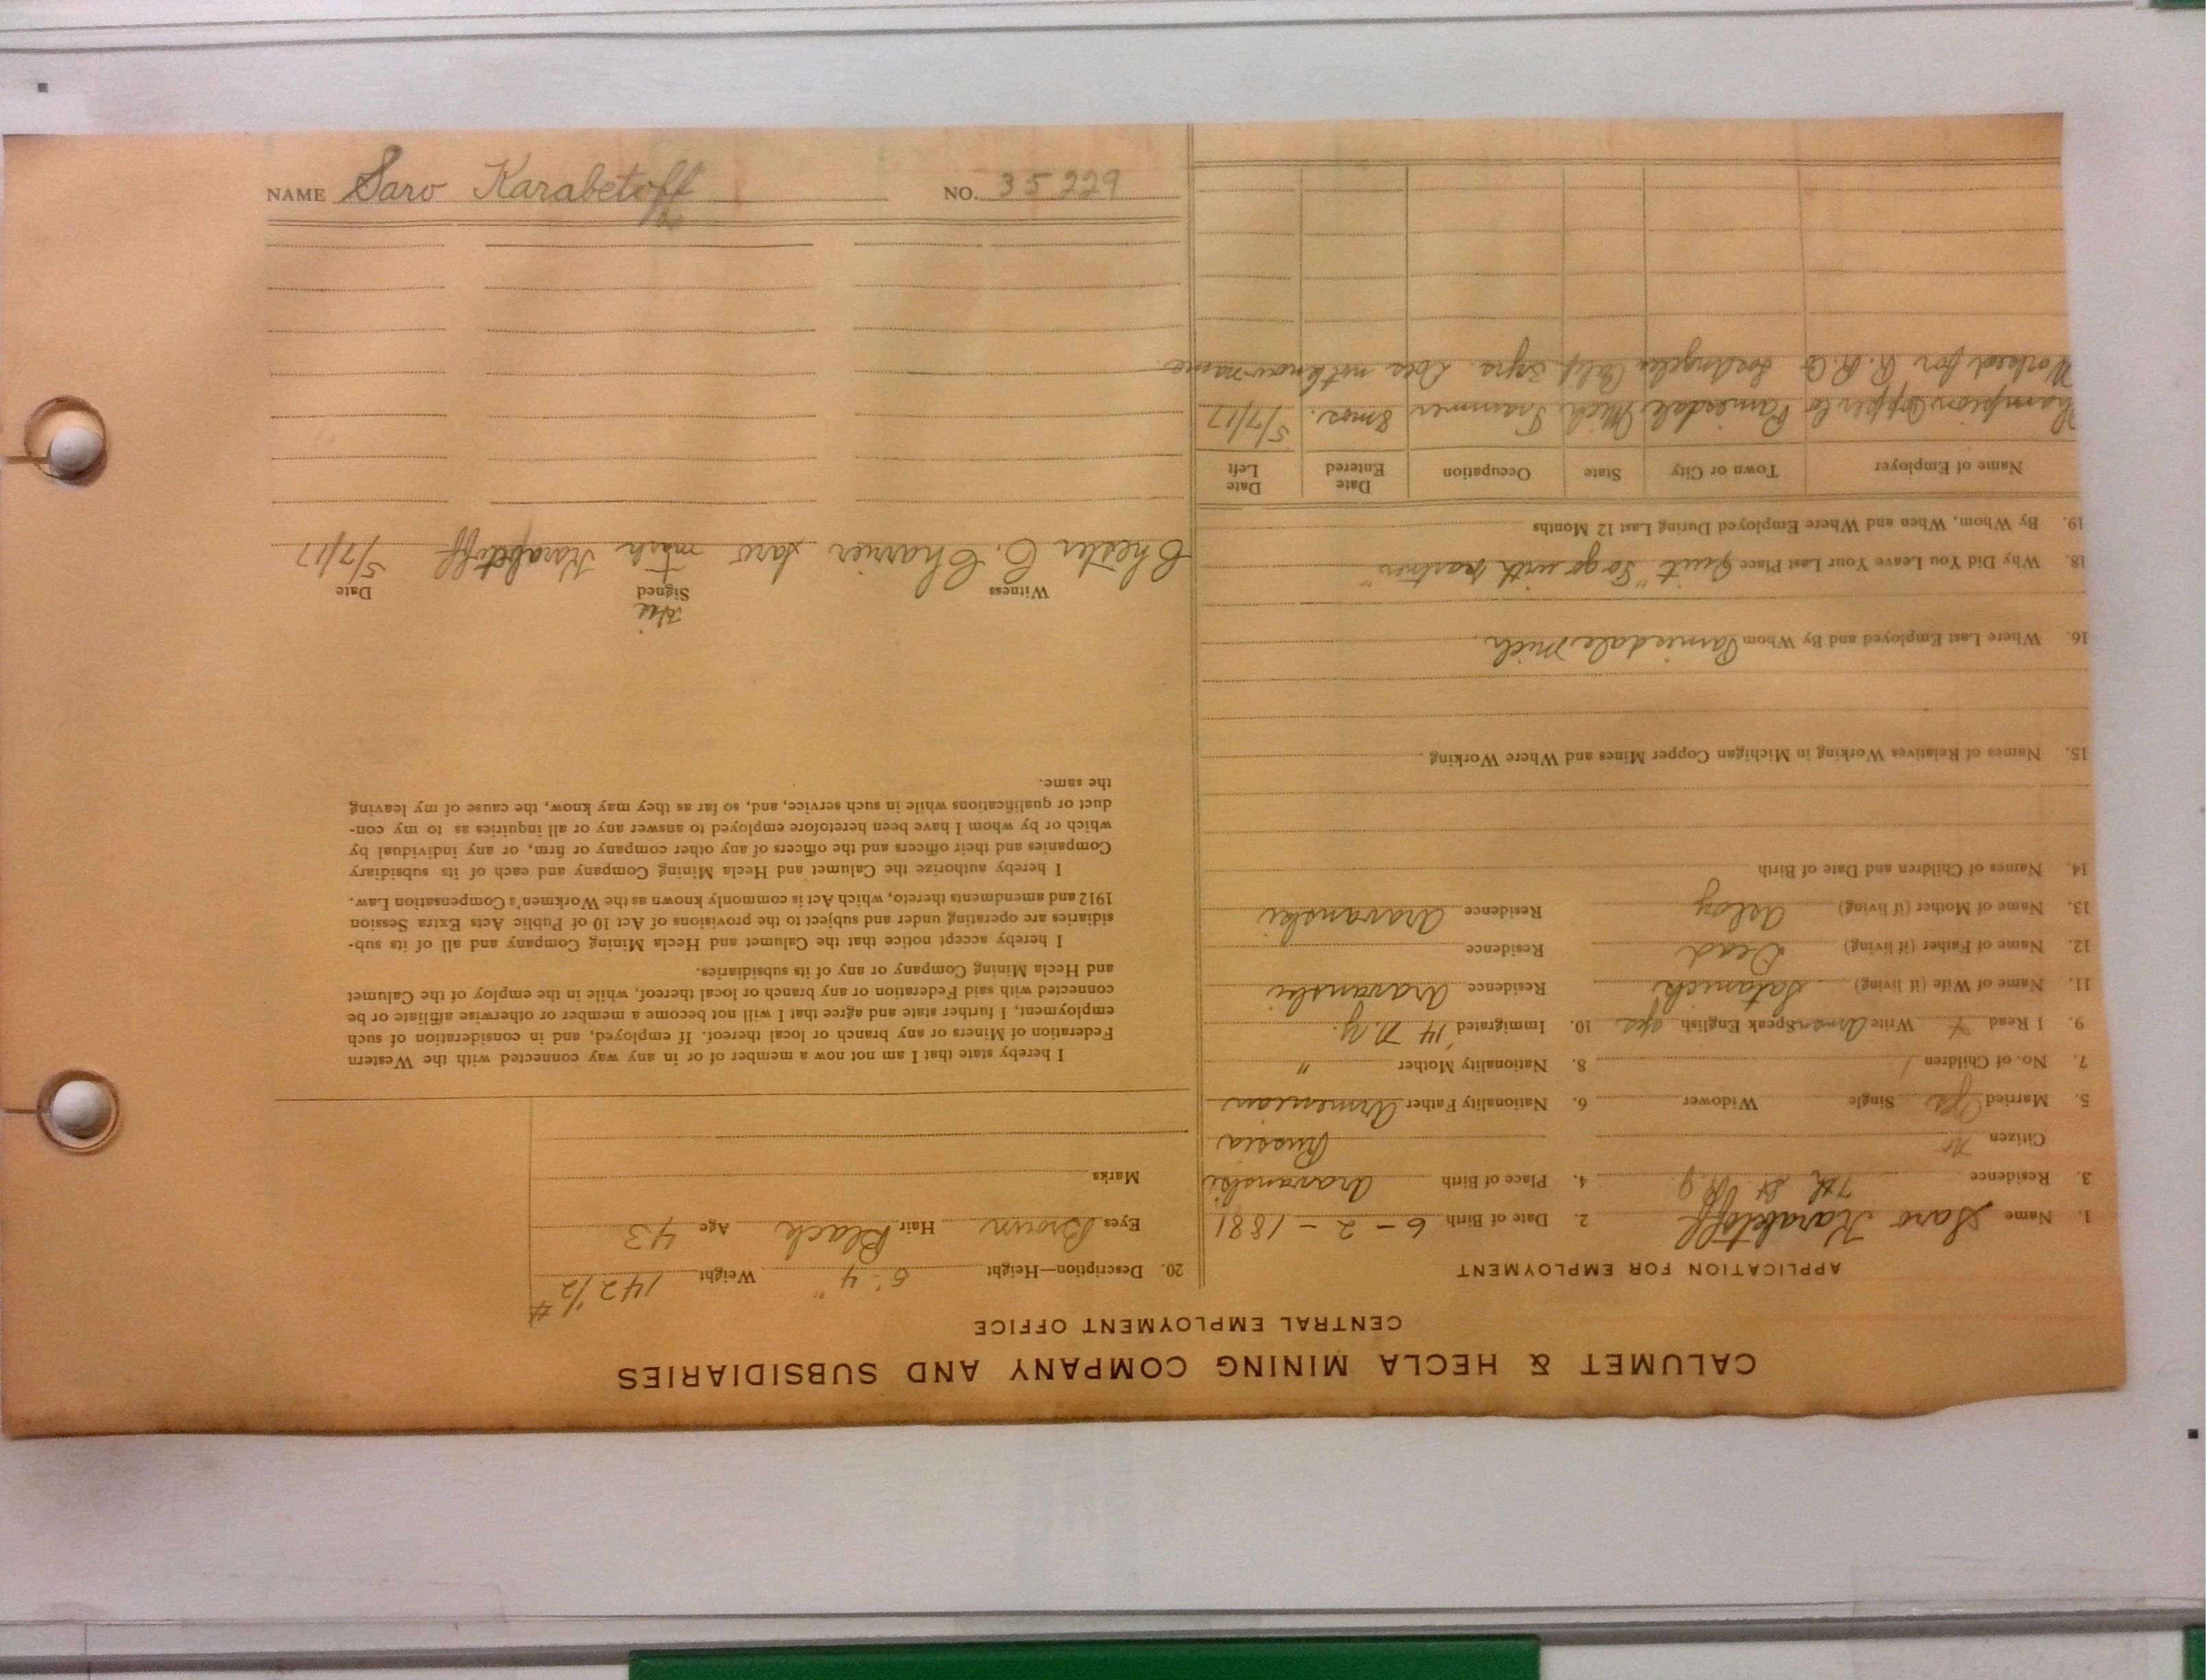 NAME Saro Karabetoff NO. 35229
CALUMET & HECLA MINING COMPANY AND SUBSIDIARIES
CENTRAL EMPLOYMENT OFFICE
APPLICATION FOR EMPLOYMENT
1. Name Saro Karabetoff 2. Date of Birth 6-2-1881
3. Residence 7th St 4. Place of Birth Aravanski
Citizen no Russia
5. Married Yes Single Widower 6. Nationality Father Armenian
7. No. of Children 1 8. Nationality Mother "
9. I Read Write Speak English yes 10. Immigrated '14 N.Y.
11. Name of Wife (if living) Satanick Residence Aravanski
12. Name of Father (if living) Dead Residence
13. Name of Mother (if living) Aslay Residence Aravanski
14. Names of Children and Date of Birth
15. Names of Relatives Working in Michigan Copper Mines and Where Working
16. Where Last Employed and By Whom Painesdale Mich.
18. Why Did You Leave Your Last Place Quit "To go with partner"
19. By Whom, When and Where Employed During Last 12 Months
Name of Employer Town or City State Occupation Date Entered Date Left
Champion Copper Co Painesdale Mich Trammer 8 mos. 5/7/17
Worked for R.R. Co Los Angeles Calif 3 yrs. Does not know name.
20. Description—Height 5' 4" Weight 142 1/2 #
Eyes Brown Hair Black Age 43
Marks
I hereby state that I am not now a member of or in any way connected with the Western
Federation of Miners or any branch or local thereof. If employed, and in consideration of such
employment, I further state and agree that I will not become a member or otherwise affiliate or be
connected with said Federation or any branch or local thereof, while in the employ of the Calumet
and Hecla Mining Company or any of its subsidiaries.
I hereby accept notice that the Calumet and Hecla Mining Company and all of its sub-
sidiaries are operating under and subject to the provisions of Act 10 of Public Acts Extra Session
1912 and amendments thereto, which Act is commonly known as the Workmen's Compensation Law.
I hereby authorize the Calumet and Hecla Mining Company and each of its subsidiary
Companies and their officers and the officers of any other company or firm, or any individual by
which or by whom I have been heretofore employed to answer any or all inquiries as to my con-
duct or qualifications while in such service, and, so far as they may know, the cause of my leaving
the same.
his
Witness Signed Date
Chester C. Charrier Saro + mark Karabetoff 5/7/17